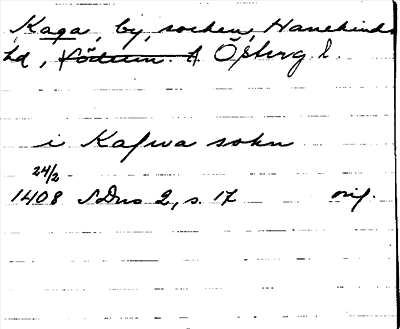 Kaga, by, socken, Hanekinds
hd, Östergl.
i Kafwa sokn
24/2
1408 SDns 2, s. 17 orig.